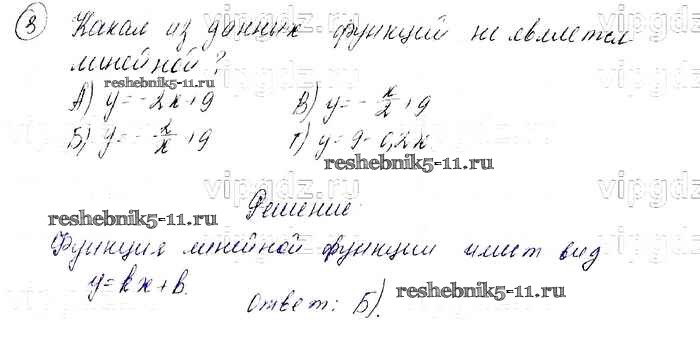 8) Какая из данных функций не является
линейной?
А) y = -2x+9 В) y = -x/2+9
Б) y = -2/x+9 Г) y = 9-0,2x.
reshebnik5-11.ru
reshebnik5-11.ru
Решение.
reshebnik5-11.ru
Функция линейной функции имеет вид
y = kx+b.
Ответ: Б).
reshebnik5-11.ru
vipgdz.ru